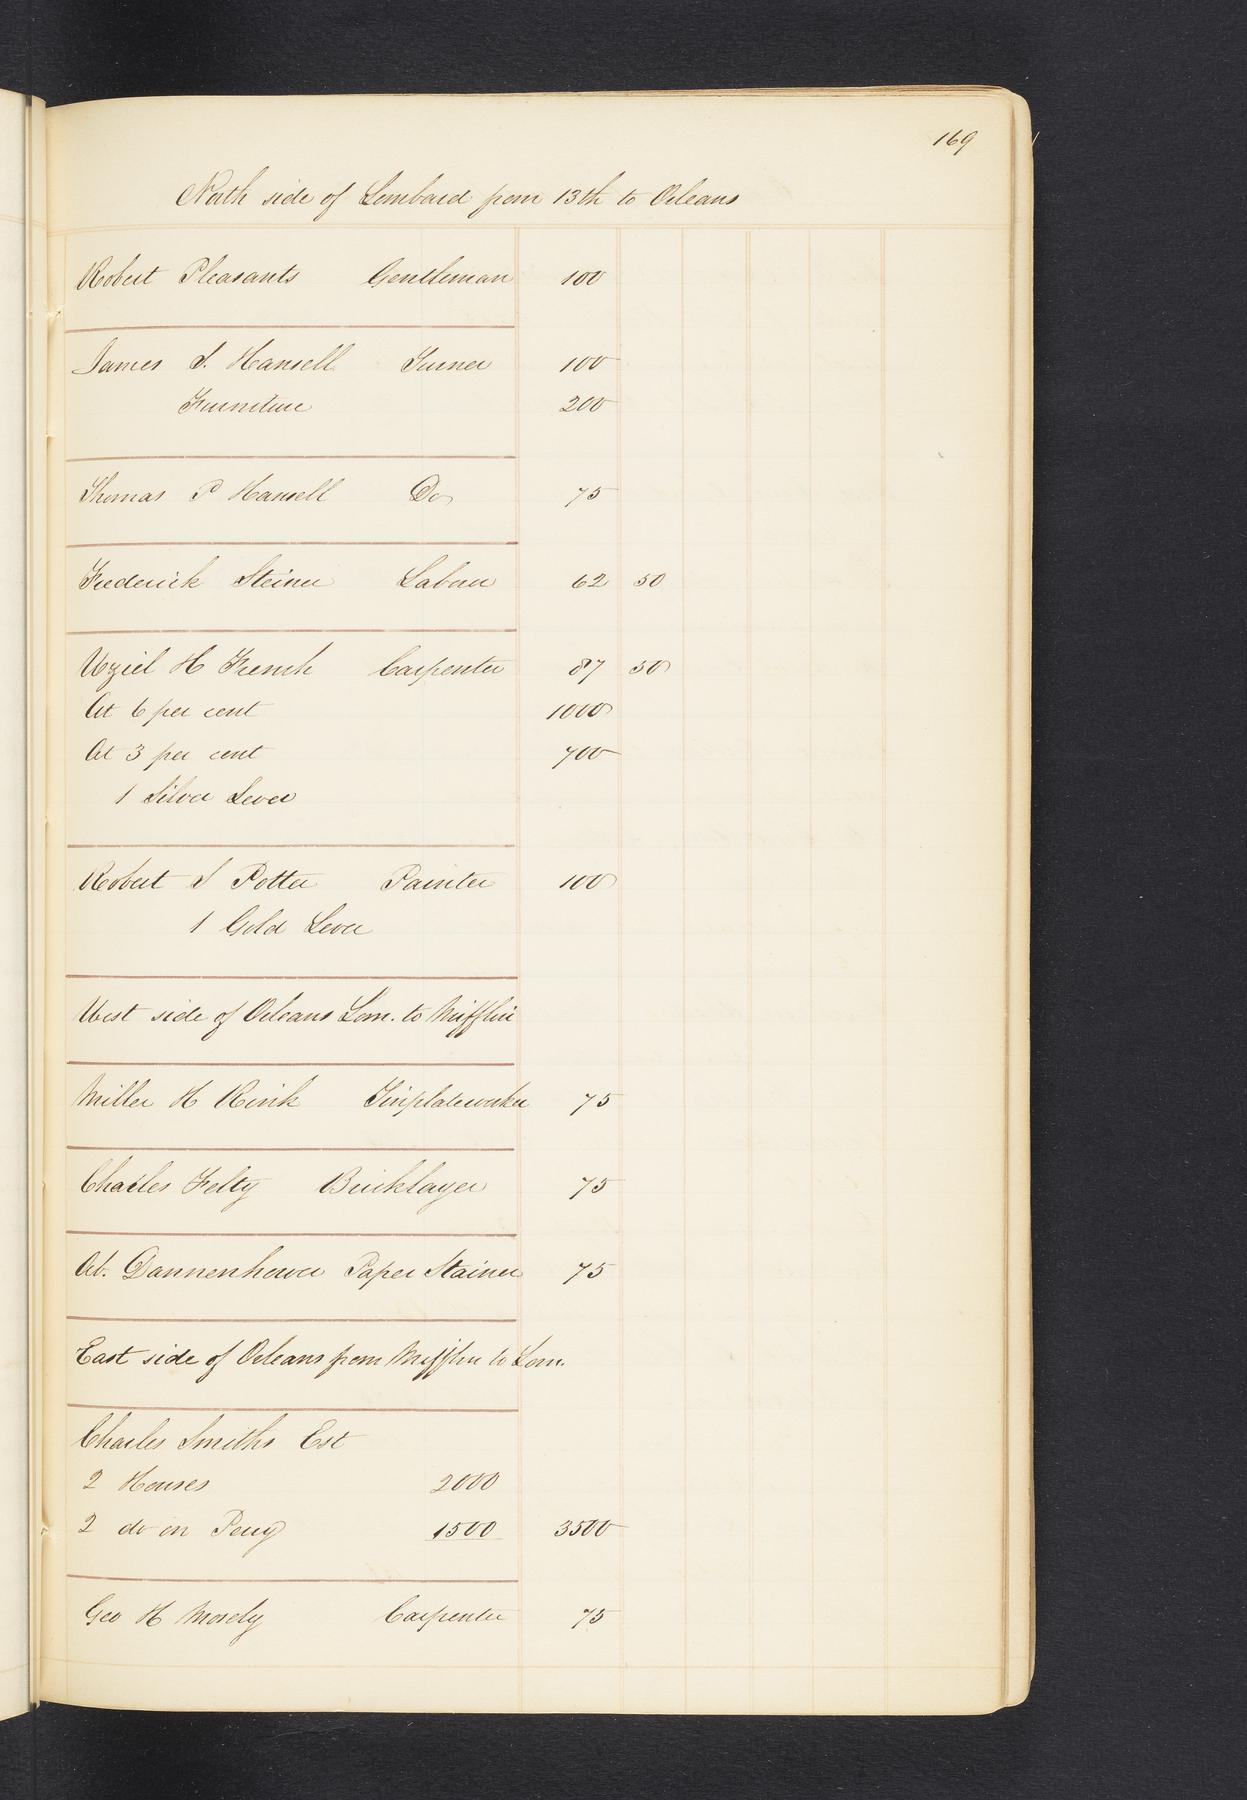 169
North side of Lombard from 13th to Orleans
Robert Pleasants Gentleman 100
James S. Hansell Turner 100
Furniture 200
Thomas P Hansell Do 75
Frederick Steiner Laborer 62 50
Uziel H French Carpenter 87 50
At 6 per cent 1000
At 3 per cent 700
1 Silver Lever
Robert S Potter Painter 100
1 Gold Lever
West side of Orleans Lom. to Mifflin
Miller H Rink Tinplateworker 75
Charles Felty Bricklayer 75
At. Dannenhower Paper Stainer 75
East side of Orleans from Mifflin to Lom.
Charles Smiths Est
2 Houses 2000
2 do on Perry 1500 3500
Geo H Mosely Carpenter 75